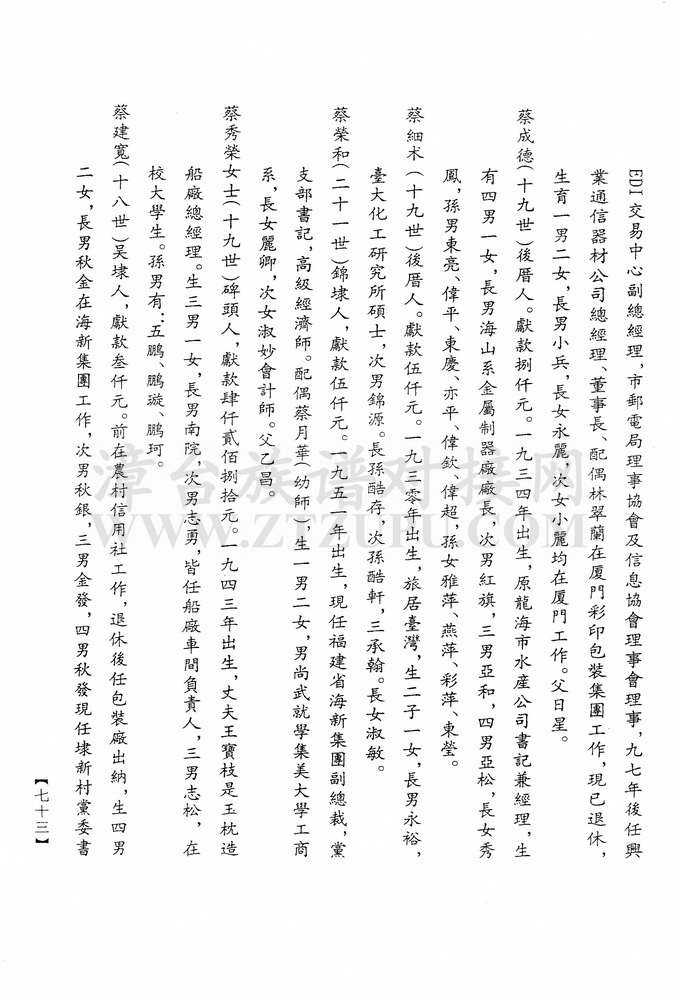 EDI交易中心副總經理，市郵電局理事協會及信息協會理事會理事，九七年後任興
業通信器材公司總經理、董事長、配偶林翠蘭在厦門彩印包裝集團工作，現已退休，
生育一男二女，長男小兵，長女永麗，次女小麗均在厦門工作。父日星。
蔡成德（十九世）後厝人。獻款捌仟元。一九三四年出生，原龍海市水産公司書記兼經理，生
有四男一女，長男海山系金屬制器廠廠長，次男紅旗，三男亞和，四男亞松，長女秀
鳳，孫男東亮、偉平、東慶、亦平、偉欽、偉超，孫女雅萍、燕萍、彩萍、東瑩。
蔡細术（十九世）後厝人。獻款伍仟元。一九三零年出生，旅居臺灣，生二子一女，長男永裕，
臺大化工研究所碩士，次男錦源。長孫酷存，次孫酷軒，三承翰。長女淑敏。
蔡榮和（二十一世）錦埭人，獻款伍仟元。一九五一年出生，現任福建省海新集團副總裁，黨
支部書記，高級經濟師。配偶蔡月華（幼師），生一男二女，男尚武就學集美大學工商
系，長女麗卿，次女淑妙會計師。父乙昌。
蔡秀榮女士（十九世）碑頭人，獻款肆仟貳佰捌拾元。一九四三年出生，丈夫王寶枝是玉枕造
船廠總經理。生三男一女，長男南院，次男志勇，皆任船廠車間負責人，三男志松，在
校大學生。孫男有：五鵬、鵬漩、鵬珂。
蔡建寬（十八世）吴埭人，獻款叁仟元。前在農村信用社工作，退休後任包裝廠出納，生四男
二女，長男秋金在海新集團工作，次男秋銀，三男金發，四男秋發現任埭新村黨委書
【七十三】
漳台族谱对接网
WWW.ZTZUPU.COM